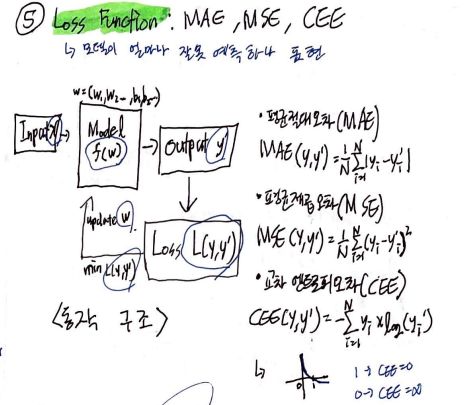 ⑤ Loss Function : MAE, MSE, CEE
↳ 모델이 얼마나 잘못 예측하나 표현
w=(w₁,w₂‥,b₁,b₂‥)
Input x →
Model
f(w)
→ output y'
update w
min L(y,y')
Loss L(y,y')
<동작 구조>
· 평균절대오차(MAE)
MAE(y,y') = 1/N ∑_{i=1}^{N} |y_i - y_i'|
· 평균제곱오차(MSE)
MSE(y,y') = 1/N ∑_{i=1}^{N} (y_i - y_i')²
· 교차 엔트로피오차(CEE)
CEE(y,y') = - ∑_{i=1}^{N} y_i × log₂(y_i')
↳
0 1
1 → CEE=0
0 → CEE=∞